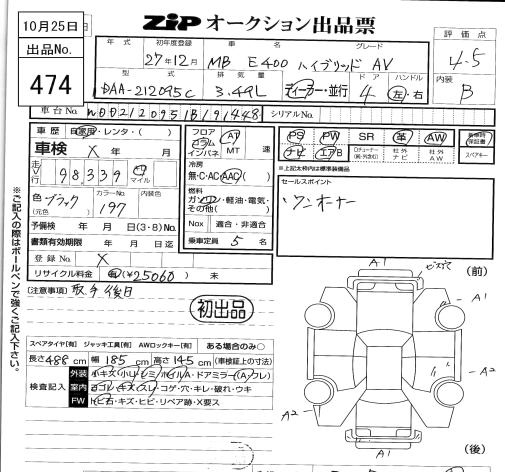 10月25日
出品No.
474
ZIP オークション出品票
評価点
4.5
内装
B
年式 初年度登録 車名 グレード
27年12月 MB E400 ハイブリッド AV
型式 排気量 ドア ハンドル
DAA-212095C 3.49L ディーラー・並行 4 左・右
車台No. WDD2120951B191448 シリアルNo.
車歴 自家用・レンタ・( )
車検 X 年 月
走行 98,339 km マイル
色 ブラック (元色) カラーNo. 197 内装色
予備検 年 月 日(3・8)No.
書類有効期限 年 月 日迄
登録No. X
リサイクル料金 有(¥25060) 未
フロア コラム インパネ AT MT 速
冷房 無・C・AC・AAC
燃料 ガソリン・軽油・電気・その他( )
Nox 適合・非適合
乗車定員 5 名
PS PW SR 革 AW
ナビ エアB Dチューナー(純・外含む) 社外ナビ 社外AW
新車時保証書
スペアキー
※上記太枠内は標準装備品
セールスポイント
ワンオーナー
[注意事項] 取手後日
初出品
スペアタイヤ[有] ジャッキ工具[有] AWロックキー[有] ある場合のみ○
長さ488cm 幅185cm 高さ145cm (車検証上の寸法)
検査記入
外装 小キズ・小凹・シミ・ホイルA・ドアミラー(A・フレ)
室内 ヨゴレ・キズ・スレ・コゲ・穴・キレ・破れ・ウキ
FW トビ石・キズ・ヒビ・リペア跡・X要ス
※ご記入の際はボールペンで強くご記入下さい。
A1
(前)
A1
A2
A2
A1
(後)